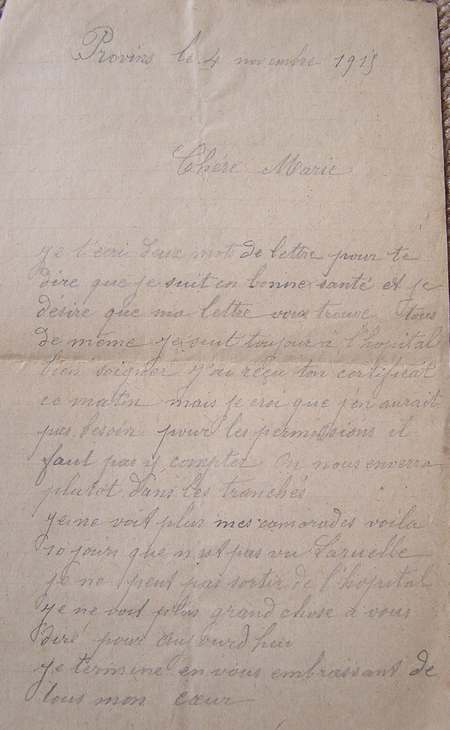 Provins le 4 novembre 1915
Chére Marie
Je t'ecri deux mot de lettre pour te
dire que je suit en bonne santé et je
désire que ma lettre vous trouve tous
de même je suit toujour a l'hopital
bien soigner j'ai reçu ton certificat
ce matin mais je croi que j'en aurait
pas besoin pour les permissions il
faut pas y compter On nous enverra
plutot dans les tranchés
Je ne voit plus mes camarades voila
10 jours que n pas vu Laruelle
je ne peut pas sortir de l'hopital
Je ne voit plus grand chose a vous
dire pour aujourd'hui
je termine en vous embrassant de
tous mon cœur